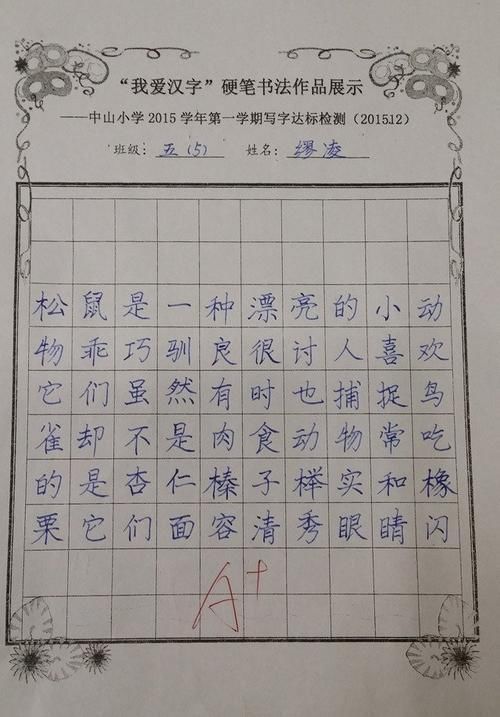 “我爱汉字”硬笔书法作品展示
——中山小学2015学年第一学期写字达标检测（2015.12）
班级：五（5） 姓名：缪凌
松鼠是一种漂亮的小动
物乖巧驯良很讨人喜欢
它们虽然有时也捕捉鸟
雀却不是肉食动物常吃
的是杏仁榛子榉实和橡
栗它们面容清秀眼睛闪
A+